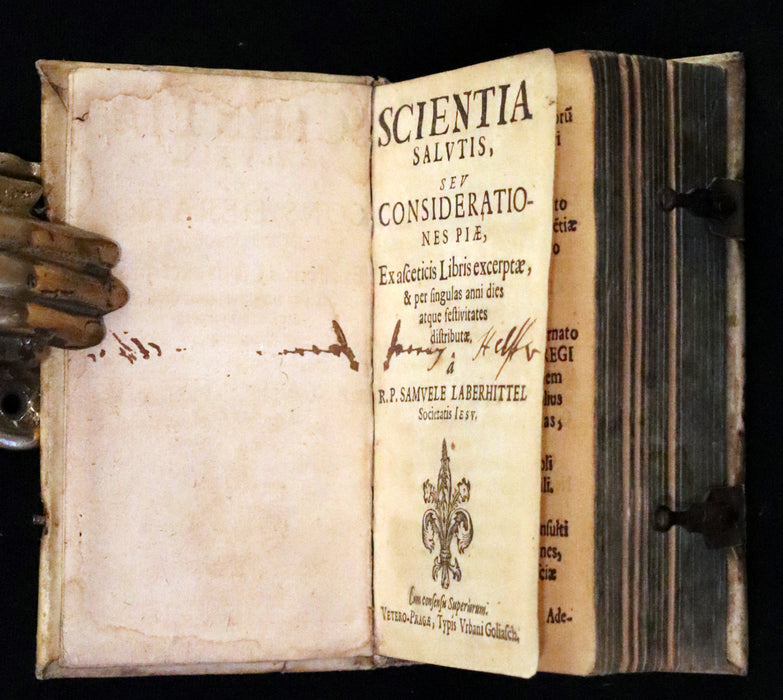 SCIENTIA
SALVTIS,
SEV
CONSIDERATIO-
NES PIÆ,
Ex aſceticis Libris excerptæ,
& per ſingulas anni dies
atque feſtivitates
diſtributæ,
à
R. P. SAMVELE LABERHITTEL
Societatis IESV.
Cum conſenſu Superiorum.
VETERO-PRAGÆ, Typis Vrbani Goliaſch.
orū
to
ctiæ
o
rnato
REGI
em
lius
as,
oſi
li.
nſulti
nes,
ciæ
Ade-